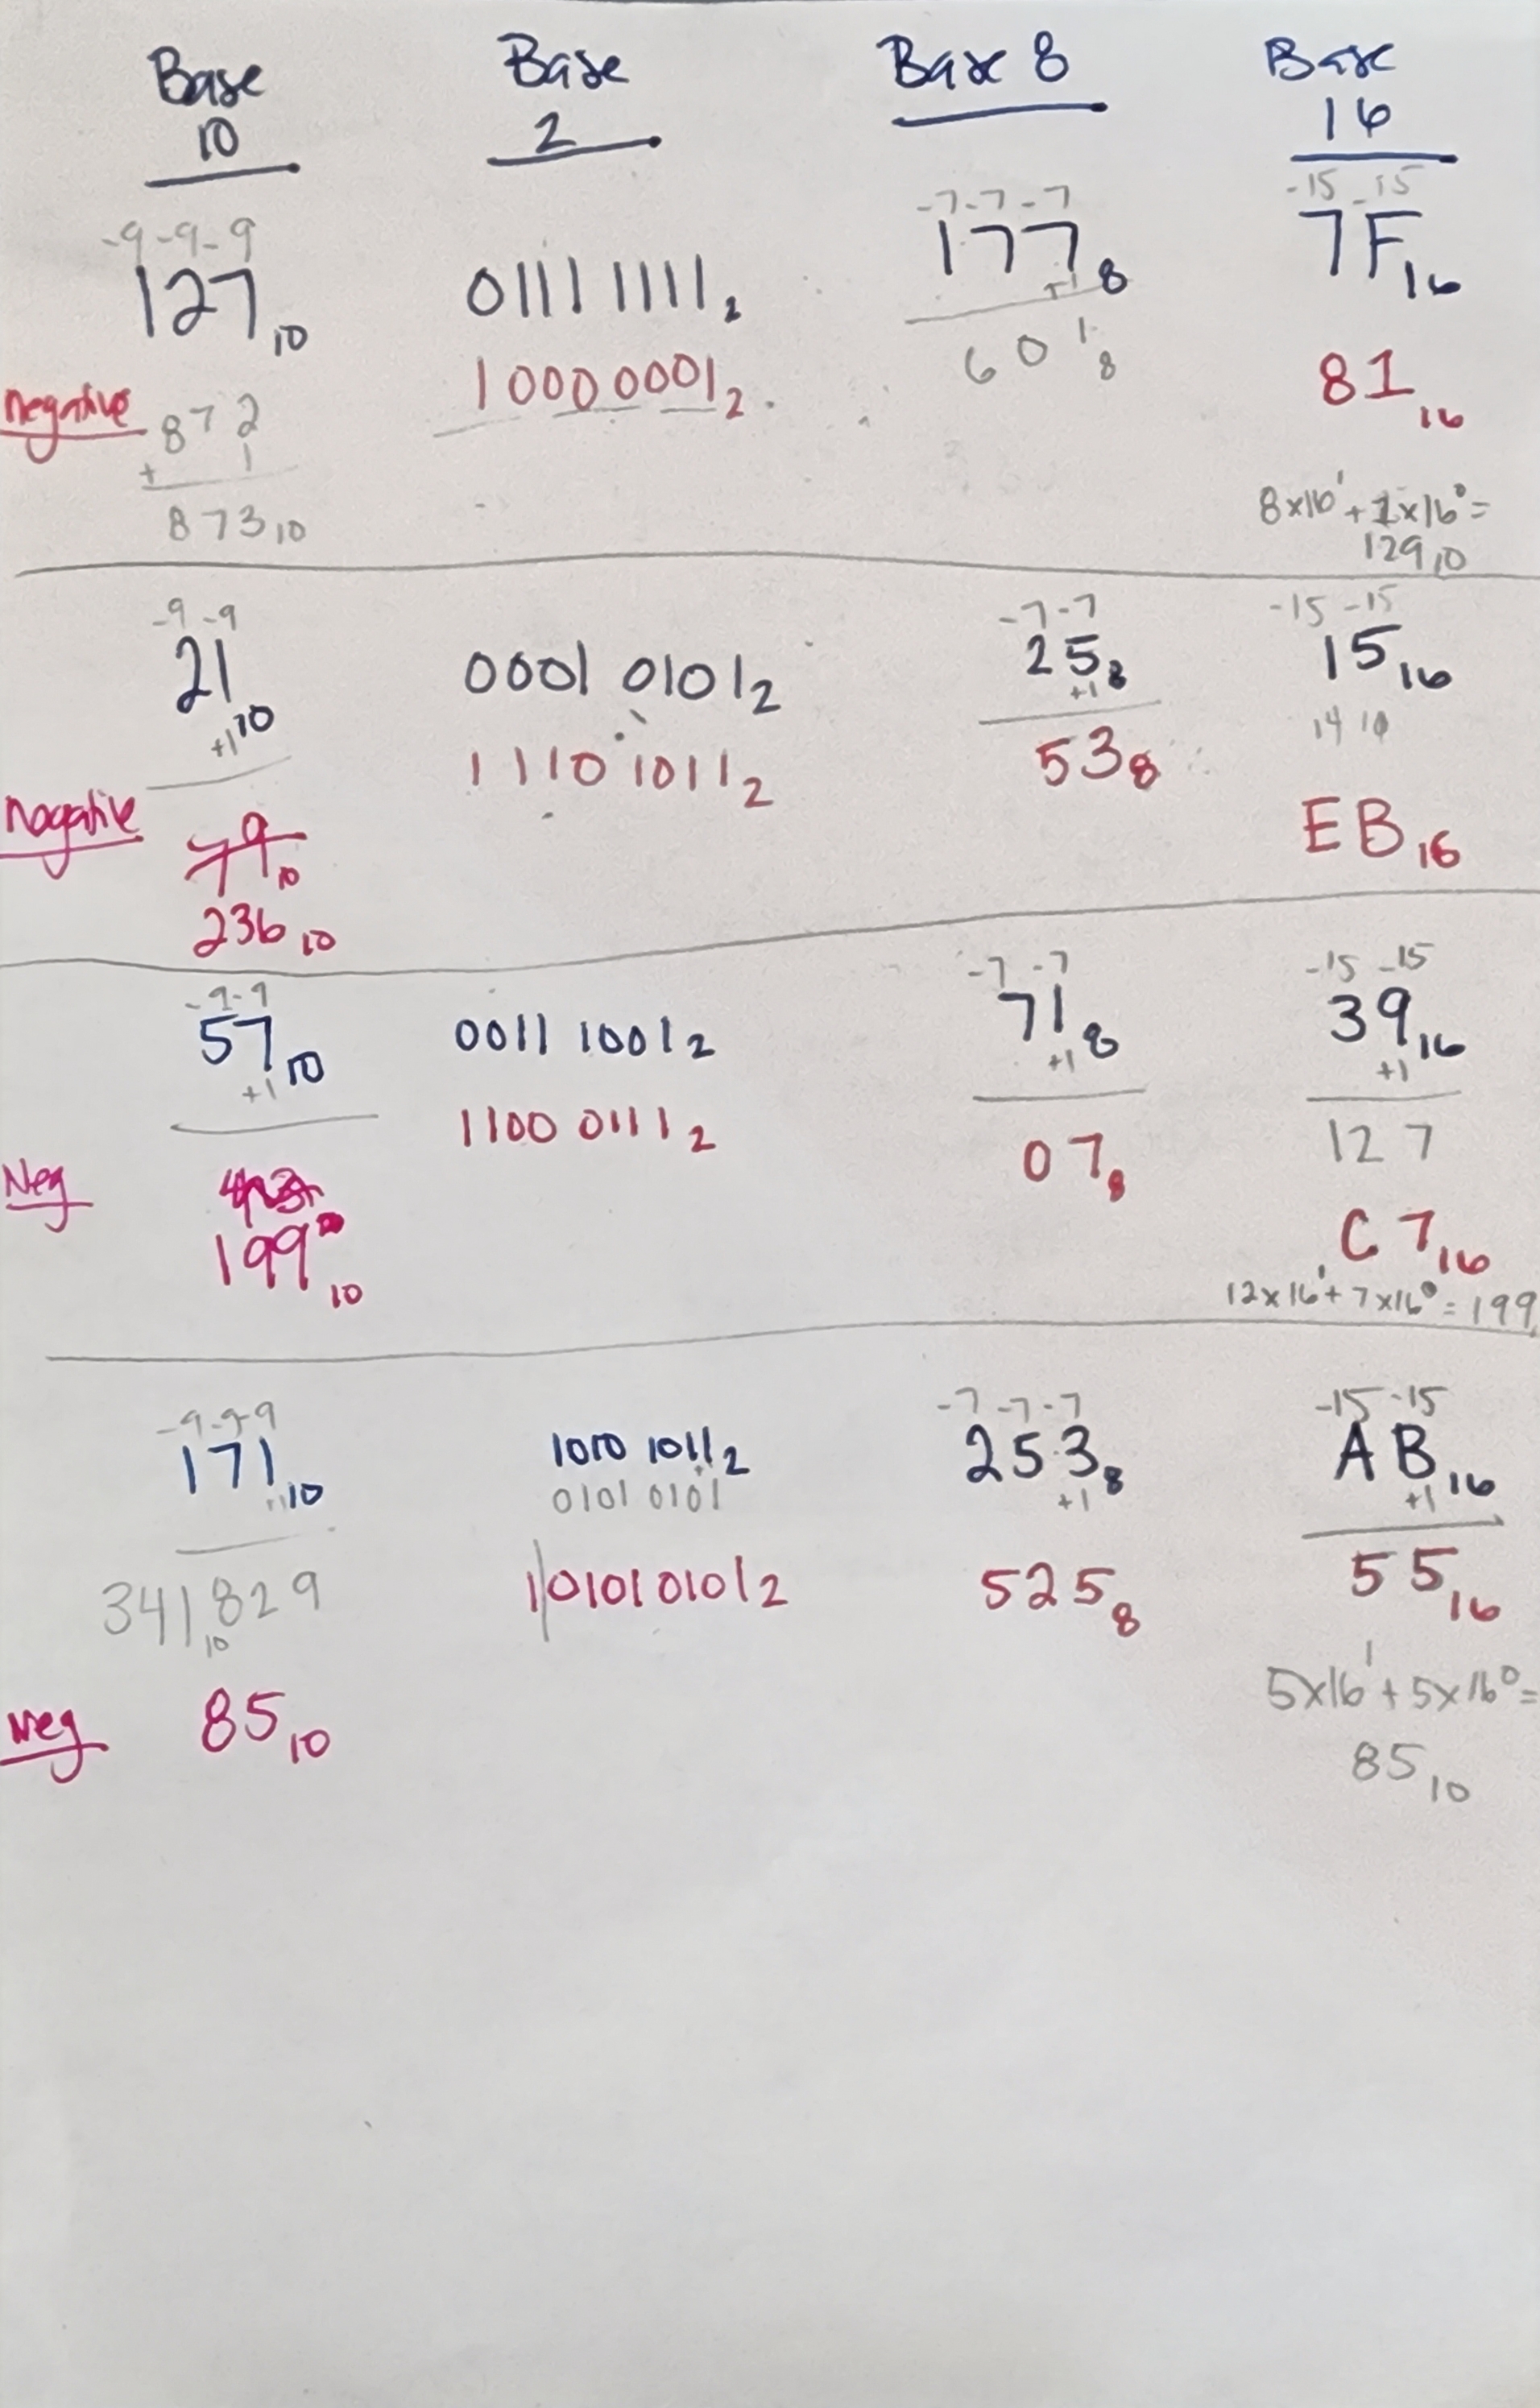 Base 10
Base 2
Base 8
Base 16
-9 -9 -9
127 10
01111111 2
-7 -7 -7
177 8
+1
-15 -15
7F 16
negative
872
+ 1
873 10
10000001 2
601 8
81 16
8x16^1 + 1x16^0 =
129 10
-9 -9
21 10
+1
0001 0101 2
-7 -7
25 8
+1
-15 -15
15 16
14 10
negative
79 10
236 10
1110 1011 2
53 8
EB 16
-9 -9
57 10
+1
0011 1001 2
-7 -7
71 8
+1
-15 -15
39 16
+1
12 7
Neg
199 10
1100 0111 2
07 8
C7 16
12x16^1 + 7x16^0 = 199
-9 -9 -9
171 10
1010 1011 2
0101 0101
-7 -7 -7
253 8
+1
-15 -15
AB 16
+1
341 10
829
1 01010101 2
525 8
55 16
5x16^1 + 5x16^0 =
85 10
neg
85 10